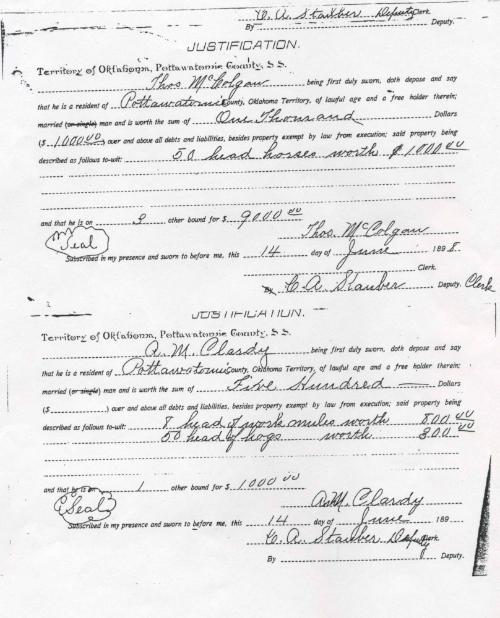 C. A. Stauber Deputy Clerk.
By Deputy.
JUSTIFICATION.
Territory of Oklahoma, Pottawatomie County, S. S.
Thos McColgan being first duly sworn, doth depose and say
that he is a resident of Pottawatomie County, Oklahoma Territory, of lawful age and a free holder therein;
married (or single) man and is worth the sum of One Thousand Dollars
($ 1000.00) over and above all debts and liabilities, besides property exempt by law from execution; said property being
described as follows to-wit: 50 head horses worth $1000.00
and that he is on 3 other bound for $ 9000.00
Thos. McColgan
Seal
Subscribed in my presence and sworn to before me, this 14 day of June 1898
Clerk.
By C. A. Stauber Deputy. Clerk
JUSTIFICATION.
Territory of Oklahoma, Pottawatomie County, S. S.
A. M. Clardy being first duly sworn, doth depose and say
that he is a resident of Pottawatomie County, Oklahoma Territory, of lawful age and a free holder therein;
married (or single) man and is worth the sum of Five Hundred Dollars
($ ) over and above all debts and liabilities, besides property exempt by law from execution; said property being
described as follows to-wit: 8 head of work mules worth 800.00
50 head of hogs worth 300.00
and that he is on 1 other bound for $ 1000.00
A. M. Clardy
Seal
Subscribed in my presence and sworn to before me, this 14 day of June 189
C. A. Stauber Deputy Clerk.
By Deputy.